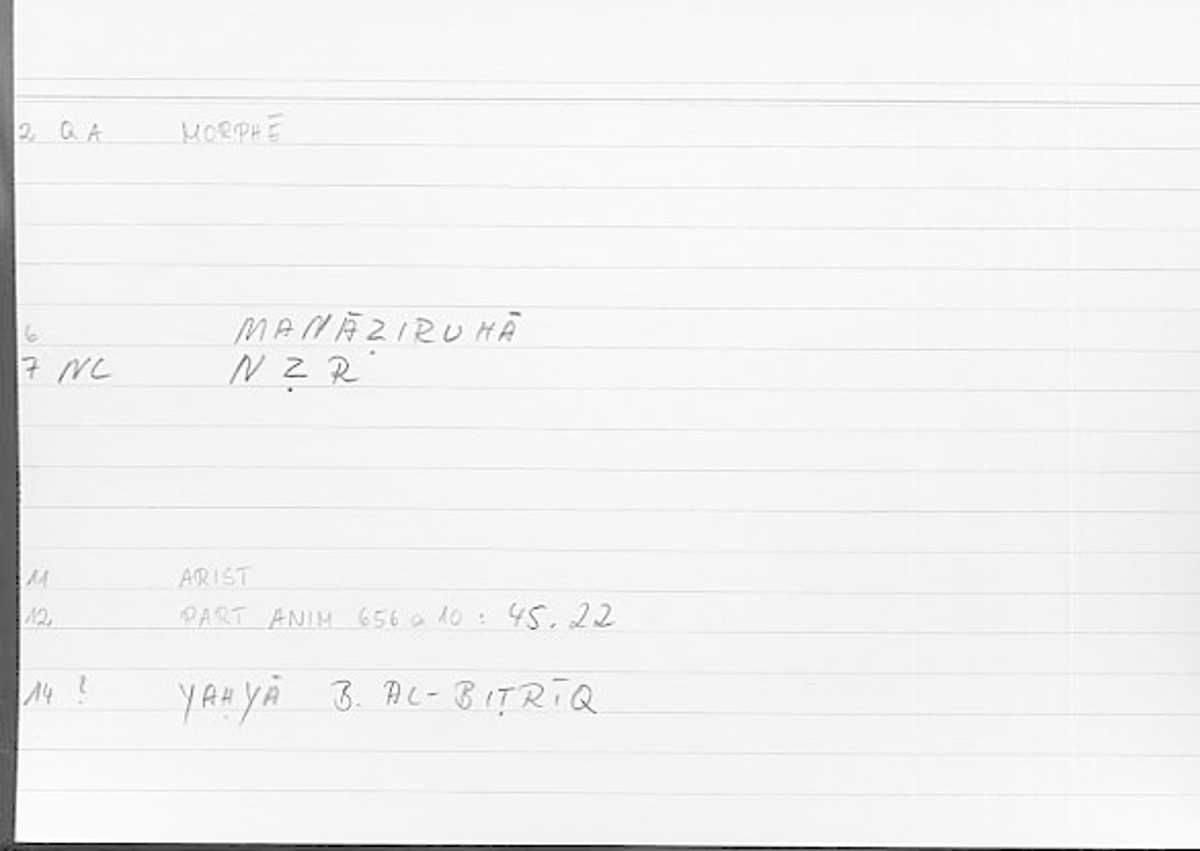 2 QA MORPHĒ
6 MANĀẒIRUHĀ
7 NC NẒR
11 ARIST
12 PART ANIM 656 a 10 : 45.22
14 ? YAḤYĀ B. AL-BIṬRĪQ